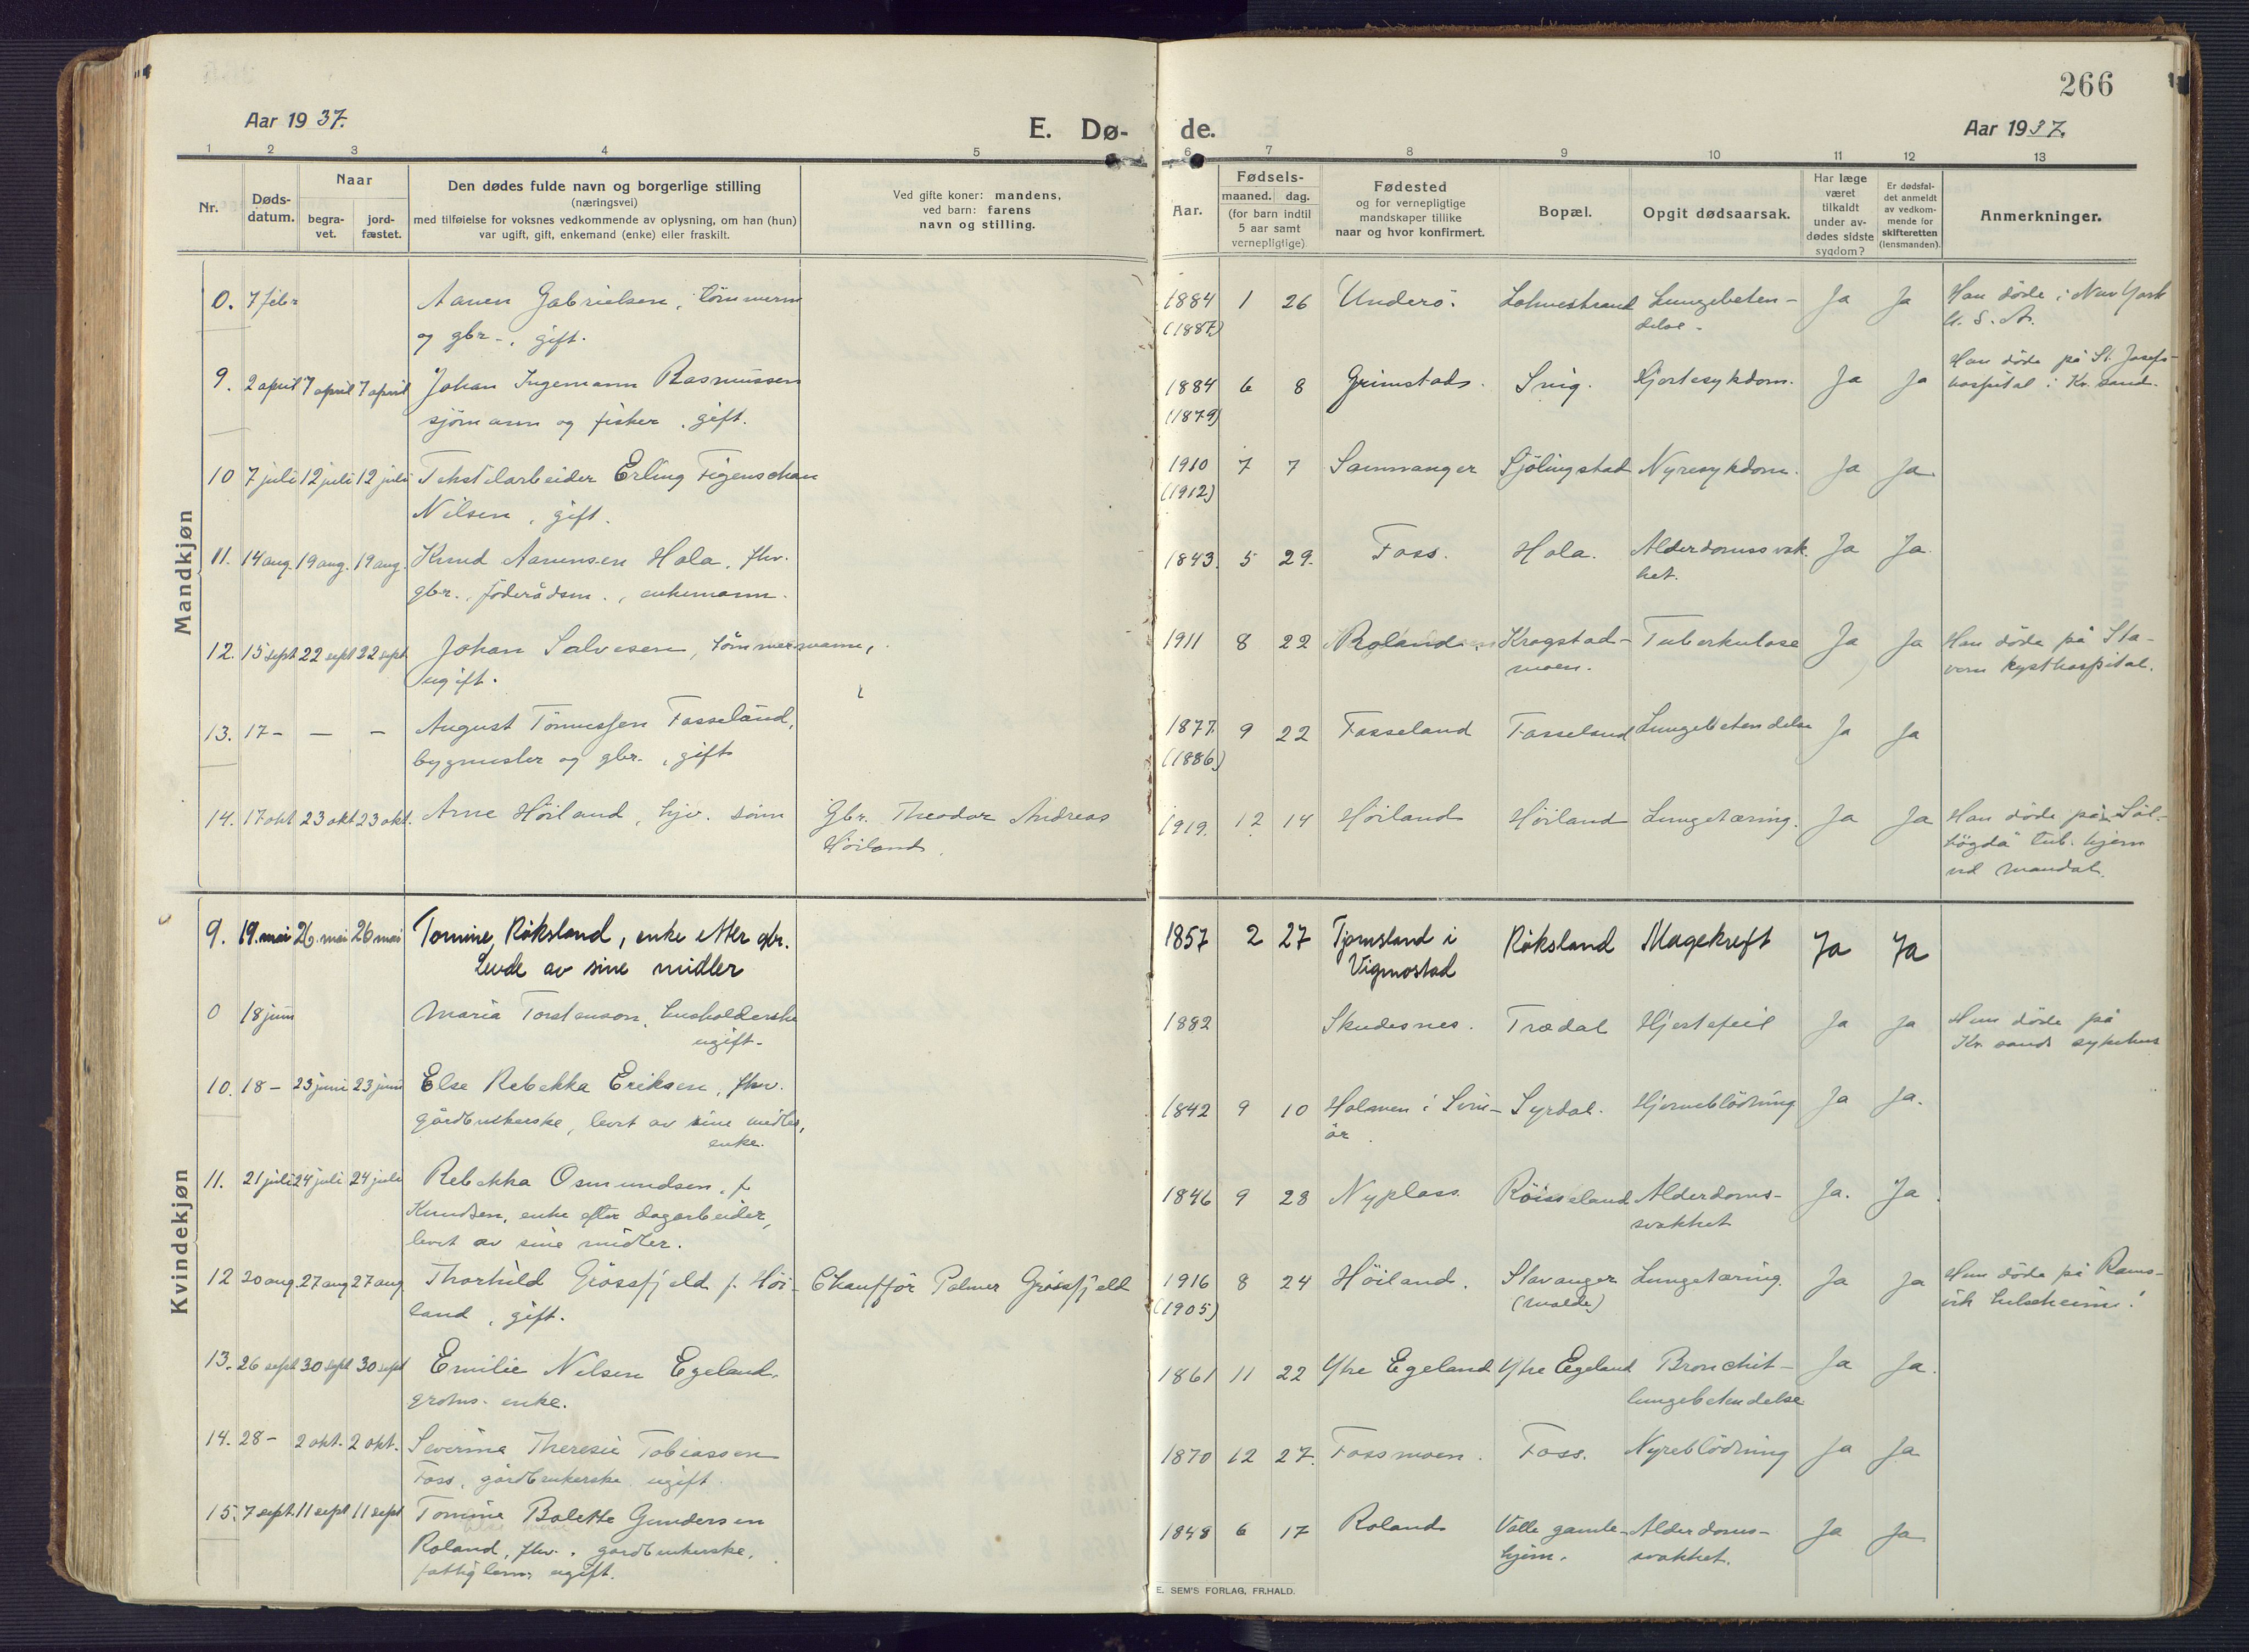 266
Aar 1937.
E. Dø- de.
Aar 1937.
1 2 3 4 5 6 7 8 9 10 11 12 13
Nr.
Døds-
datum.
Naar
begra-
vet.
jord-
fæstet.
Den dødes fulde navn og borgerlige stilling
(næringsvei)
med tilføielse for voksnes vedkommende av oplysning, om han (hun)
var ugift, gift, enkemand (enke) eller fraskilt.
Ved gifte koner: mandens,
ved barn: farens
navn og stilling.
Aar.
Fødsels-
maaned. dag.
(for barn indtil
5 aar samt
vernepligtige)
Fødested
og for vernepligtige
mandskaper tillike
naar og hvor konfirmert.
Bopæl.
Opgit dødsaarsak.
Har læge
været
tilkaldt
under av-
dødes sidste
sygdom?
Er dødsfal-
det anmeldt
av vedkom-
mende for
skifteretten
(lensmanden).
Anmerkninger.
Mandkjøn
0. 7 febr Aanen Gabrielsen, tömmerm 1884 1 26 Underö. Lohnestrand Lungebeten- Ja Ja Han döde i New York
og gbr-, gift. (1887) delse - U. S. A.
9. 2 april 7 april 7 april Johan Ingemann Rasmussen 1884 6 8 Grimstad. Snig. Hjertesykdom. Ja Ja Han döde på St. Josefs-
sjömann og fisker, gift. (1879) hospital i Kr. sand.
10 7 juli 12 juli 12 juli Tekstilarbeider Erling Figenschau 1910 7 7 Samnanger Sjölingstad Nyresykdom. Ja Ja
Nilsen, gift. (1912)
11. 14 aug. 19 aug. 19 aug. Knud Aanensen Hola, fhv. 1843. 5 29. Foss. Hola. Alderdomssvak- Ja Ja.
gbr., föderådsm., enkemann. het.
12. 15 sept 22 sept 22 sept Johan Salvesen, tömmermann, 1911 8 22 Roland Krogstad- Tuberkulose Ja Ja Han döde på Sta-
ugift. moen. vern kysthospital.
13. 17 - - - August Tönnessen Fasseland, 1877. 9 22 Fasseland Fasseland Lungebetendelse Ja Ja
bygmester og gbr., gift (1886)
14. 17 okt 23 okt 23 okt. Arne Höiland, hjv. sönn Gbr. Theodor Andreas 1919. 12 14 Höiland Höiland Lungetæring. Ja Ja Han döde på Sol-
Höiland. högda tub. hjem
ved Mandal.
Kvindekjøn
9. 19. mai 26. mai 26 mai Tomine Röksland, enke etter gbr. 1857 2 27 Tjomsland i Röksland Magekreft Ja Ja
Levde av sine midler Vigmostad
0 18 juni Maria Torstenson, husholderske 1882 Skudesnes. Trædal Hjertefeil Ja Ja Hun döde på
ugift- Kr. sands sykehus
10. 18 - 23 juni 23 juni Else Rebekka Eriksen, fhv. 1842 9 10 Holmen i Syrdal. Hjerneblödning Ja Ja.
gårdbrukerske, levet av sine midler,
enke.
11. 21 juli 24 juli 24 juli Rebekka Osmundsen, f. 1846 9 28 Nyplass. Röisseland Alderdoms- Ja. Ja
Knudsen, enke efter dagarbeider, svakhet
levet av sine midler.
12 20 aug. 27 aug 27 aug Thorhild Gråssfjeld f. Höi- Chaufför Palmer Gråssfjeld 1916 8 24 Höiland. Stavanger Lungetæring. Ja Ja Hun döde på Rams-
land, gift. (1905) vik helseheim!
13. 26 sept 30 sept 30 sept Emilie Nilsen Egeland, 1861 11 22 Ytre Egeland Ytre Egeland Bronchit- Ja Ja.
enke. lungebetendelse
14. 28 - 2 okt. 2 okt. Severine Theresie Tobiassen 1870 12 27. Fossmoen. Foss. Nyreblödning Ja Ja
Foss, gårdbrukerske, ugift.
15. 7 sept. 11 sept 11 sept Tomine Bolette Gundersen 1848 6 17 Roland Valle gamle- Alderdoms- Ja Ja
Roland, fhv. gardbrukerske, hjem. svakhet.
fattiglem, ugift.
E. SEM'S FORLAG, FR.HALD.